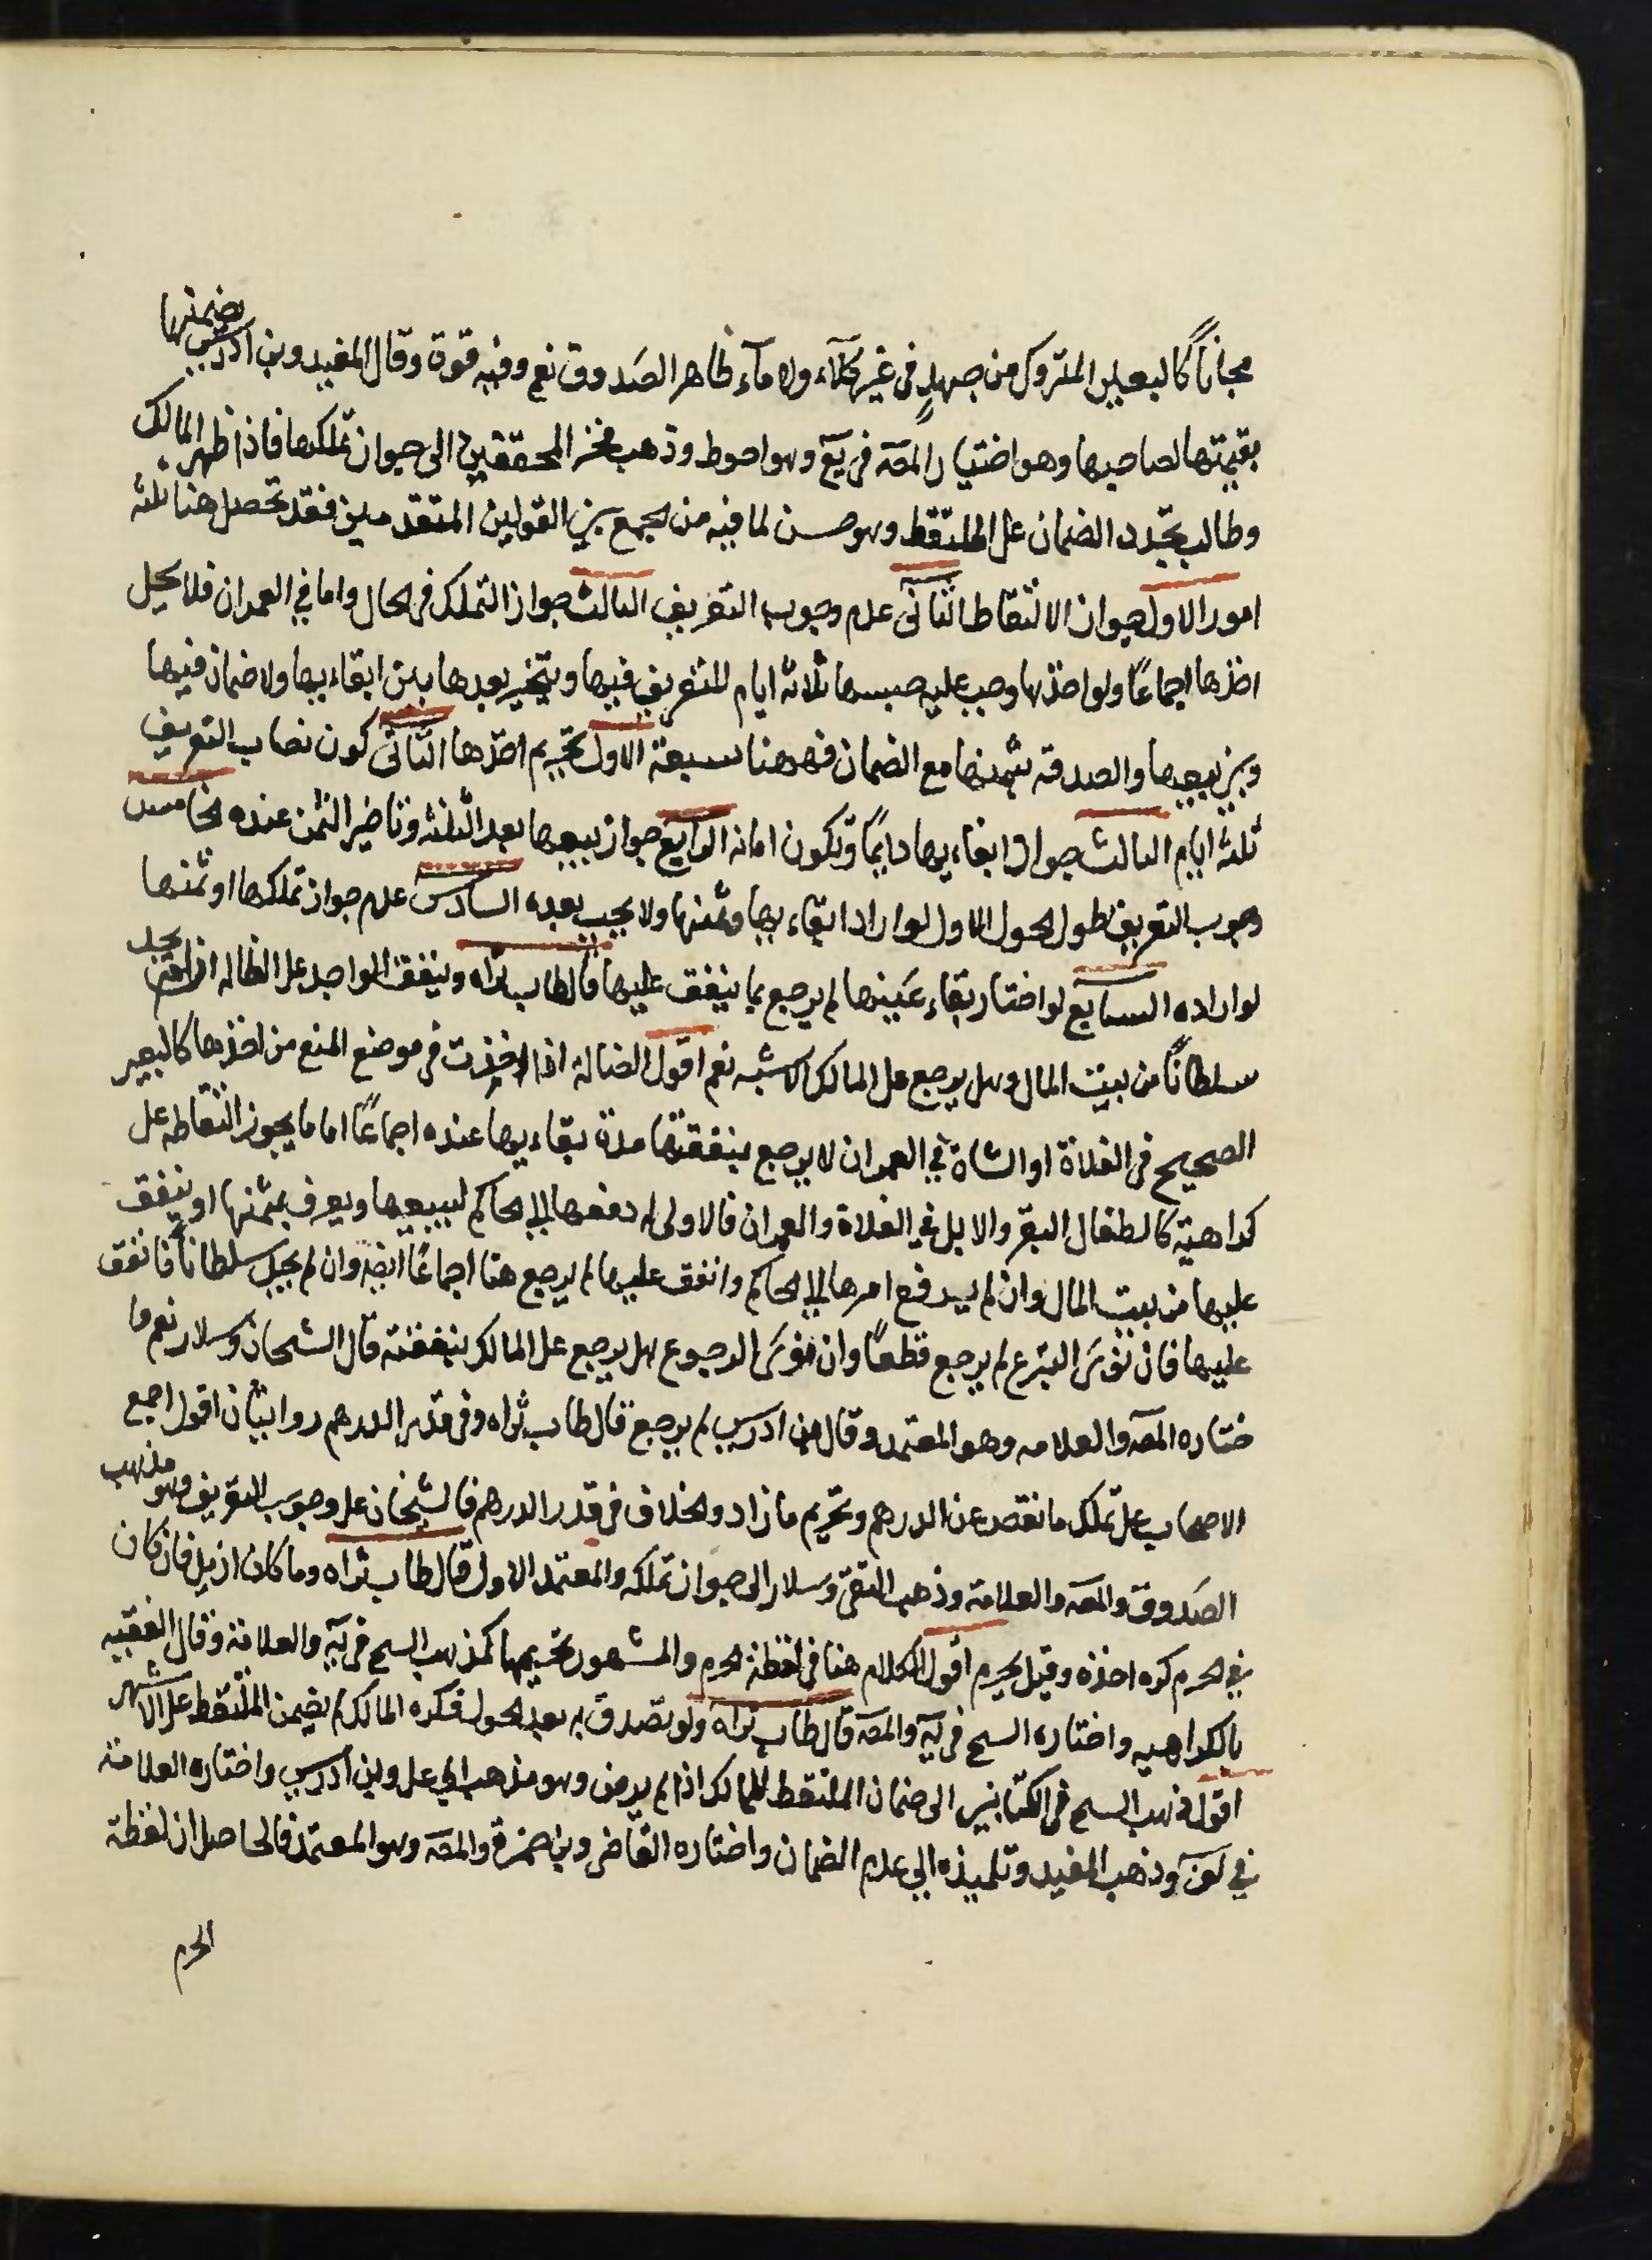 مجاناً كالبعير المتروك من جهدٍ في غير كلآء ولا مآء ظاهر الصدوق نعم وفيه قوة وقال المفيد وبن ادريس يضمنها
بقيمتها لصاحبها وهو اختيار المصه في يع وهو احوط وذهب فخر المحققين الى جواز تملكها فاذا ظهر المالك
وطالب تجدد الضمان على الملتقط وهو حسن لما فيه من الجمع بين القولين المتقدمين فقد تحصل هنا ثلثه
امور الاول جواز الالتقاط الثاني عدم وجوب التعريف الثالث جواز التملك في الحال واما في العمران فلا يحل
اخذها اجماعاً ولو اخذها وجب عليه حبسها ثلاثه ايام للتعريف فيها ويتخير بعدها بين ابقاءيها ولا ضمان فيها
وبين بيعها والصدقه بثمنها مع الضمان فههنا سبعة الاول تحريم اخذها الثاني كون نصاب التعريف
ثلثه ايام الثالث جواز ابقاءيها دايماً وتكون امانه الرابع جواز بيعها بعد الثلثه وتاخير الثمن عنده الخامس
وجوب التعريف طول الحول الاول لو اراد ابقاءيها وثمنها ولا يجب بعده السادس عدم جواز تملكها او ثمنها
لو اراده السابع لو اختار بقاء عينها لم يرجع بما ينفق عليها قال طاب ثراه وينفق الواجد على الظاله ان لم يجد
سلطاناً من بيت المال وهل يرجع على المالك الاشبه نعم اقول الضالة اذا اخذت في موضع المنع من اخذها كالبعير
الصحيح في الفلاة او الشاة في العمران لا يرجع بنفقتها مدة بقاءيها عنده اجماعاً اما ما يجوز التقاطه على
كراهية كاطفال البقر والابل في الفلاة والعمران فالاولى له دفعها الى الحاكم ليبيعها ويعرف بثمنها او ينفق
عليها من بيت المال وان لم يدفع امرها الى الحاكم وانفق عليها لم يرجع هنا اجماعاً ايضا وان لم يجد سلطاناً فانفق
عليها فان نوى التبرع لم يرجع قطعاً وان نوى الرجوع هل يرجع على المالك بنفقته قال الشيخان وسلار نعم وا
ختاره المصه والعلامه وهو المعتمد وقال بن ادريس لم يرجع قال طاب ثراه وفي قدر الدرهم روايتان اقول اجمع
الاصحاب على تملك ما نقص عن الدرهم وتحريم ما زاد والخلاف في قدر الدرهم فالشيخان على وجوب التعريف وهو مذهب
الصدوق والمصه والعلامة وذهب التقي وسلار الى جواز تملكه والمعتمد الاول قال طاب ثراه وما كان ازيد فان كان
في الحرم كره اخذه وقيل يحرم اقول الكلام هنا في لقطة الحرم والمشهور تحريمها كمذهب الشيخ في يه والعلامة وقال الفقيه
بالكراهيه واختاره الشيخ في يه والمصه قال طاب ثراه ولو تصدق به بعد الحول فكره المالك لم يضمن الملتقط على الاشهر
اقول ذهب الشيخ في الكتابين الى ضمان الملتقط للمالك اذا لم يرض وهو مذهب ابي علي وبن ادريس واختاره العلامة
في لف وذهب المفيد وتلميذه الى عدم الضمان واختاره القاضي وبن حمزة والمصه وهو المعتمد فالحاصل ان لقطة
الحرم